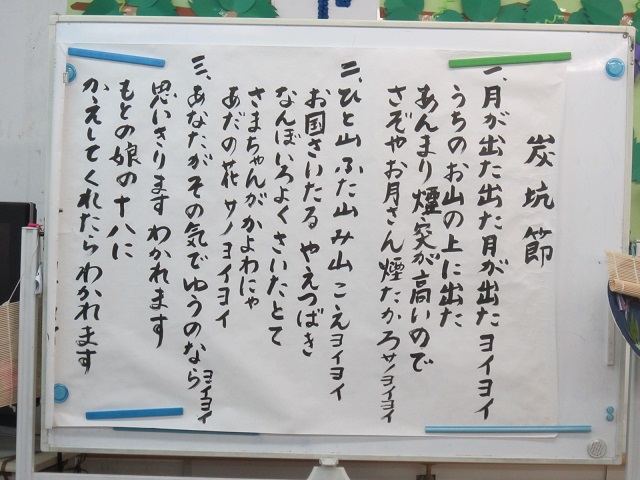 炭坑節
一、月が出た出た月が出たヨイヨイ
うちのお山の上に出た
あんまり煙突が高いので
さぞやお月さん煙たかろサノヨイヨイ
二、ひと山ふた山み山こえヨイヨイ
お国さいたるやえつばき
なんぼいろよくさいたとて
さまちゃんがかよわにゃ
あだの花サノヨイヨイ
三、あなたがその気でゆうのならヨイヨイ
思いきりますわかれます
もとの娘の十八に
かえしてくれたらわかれます